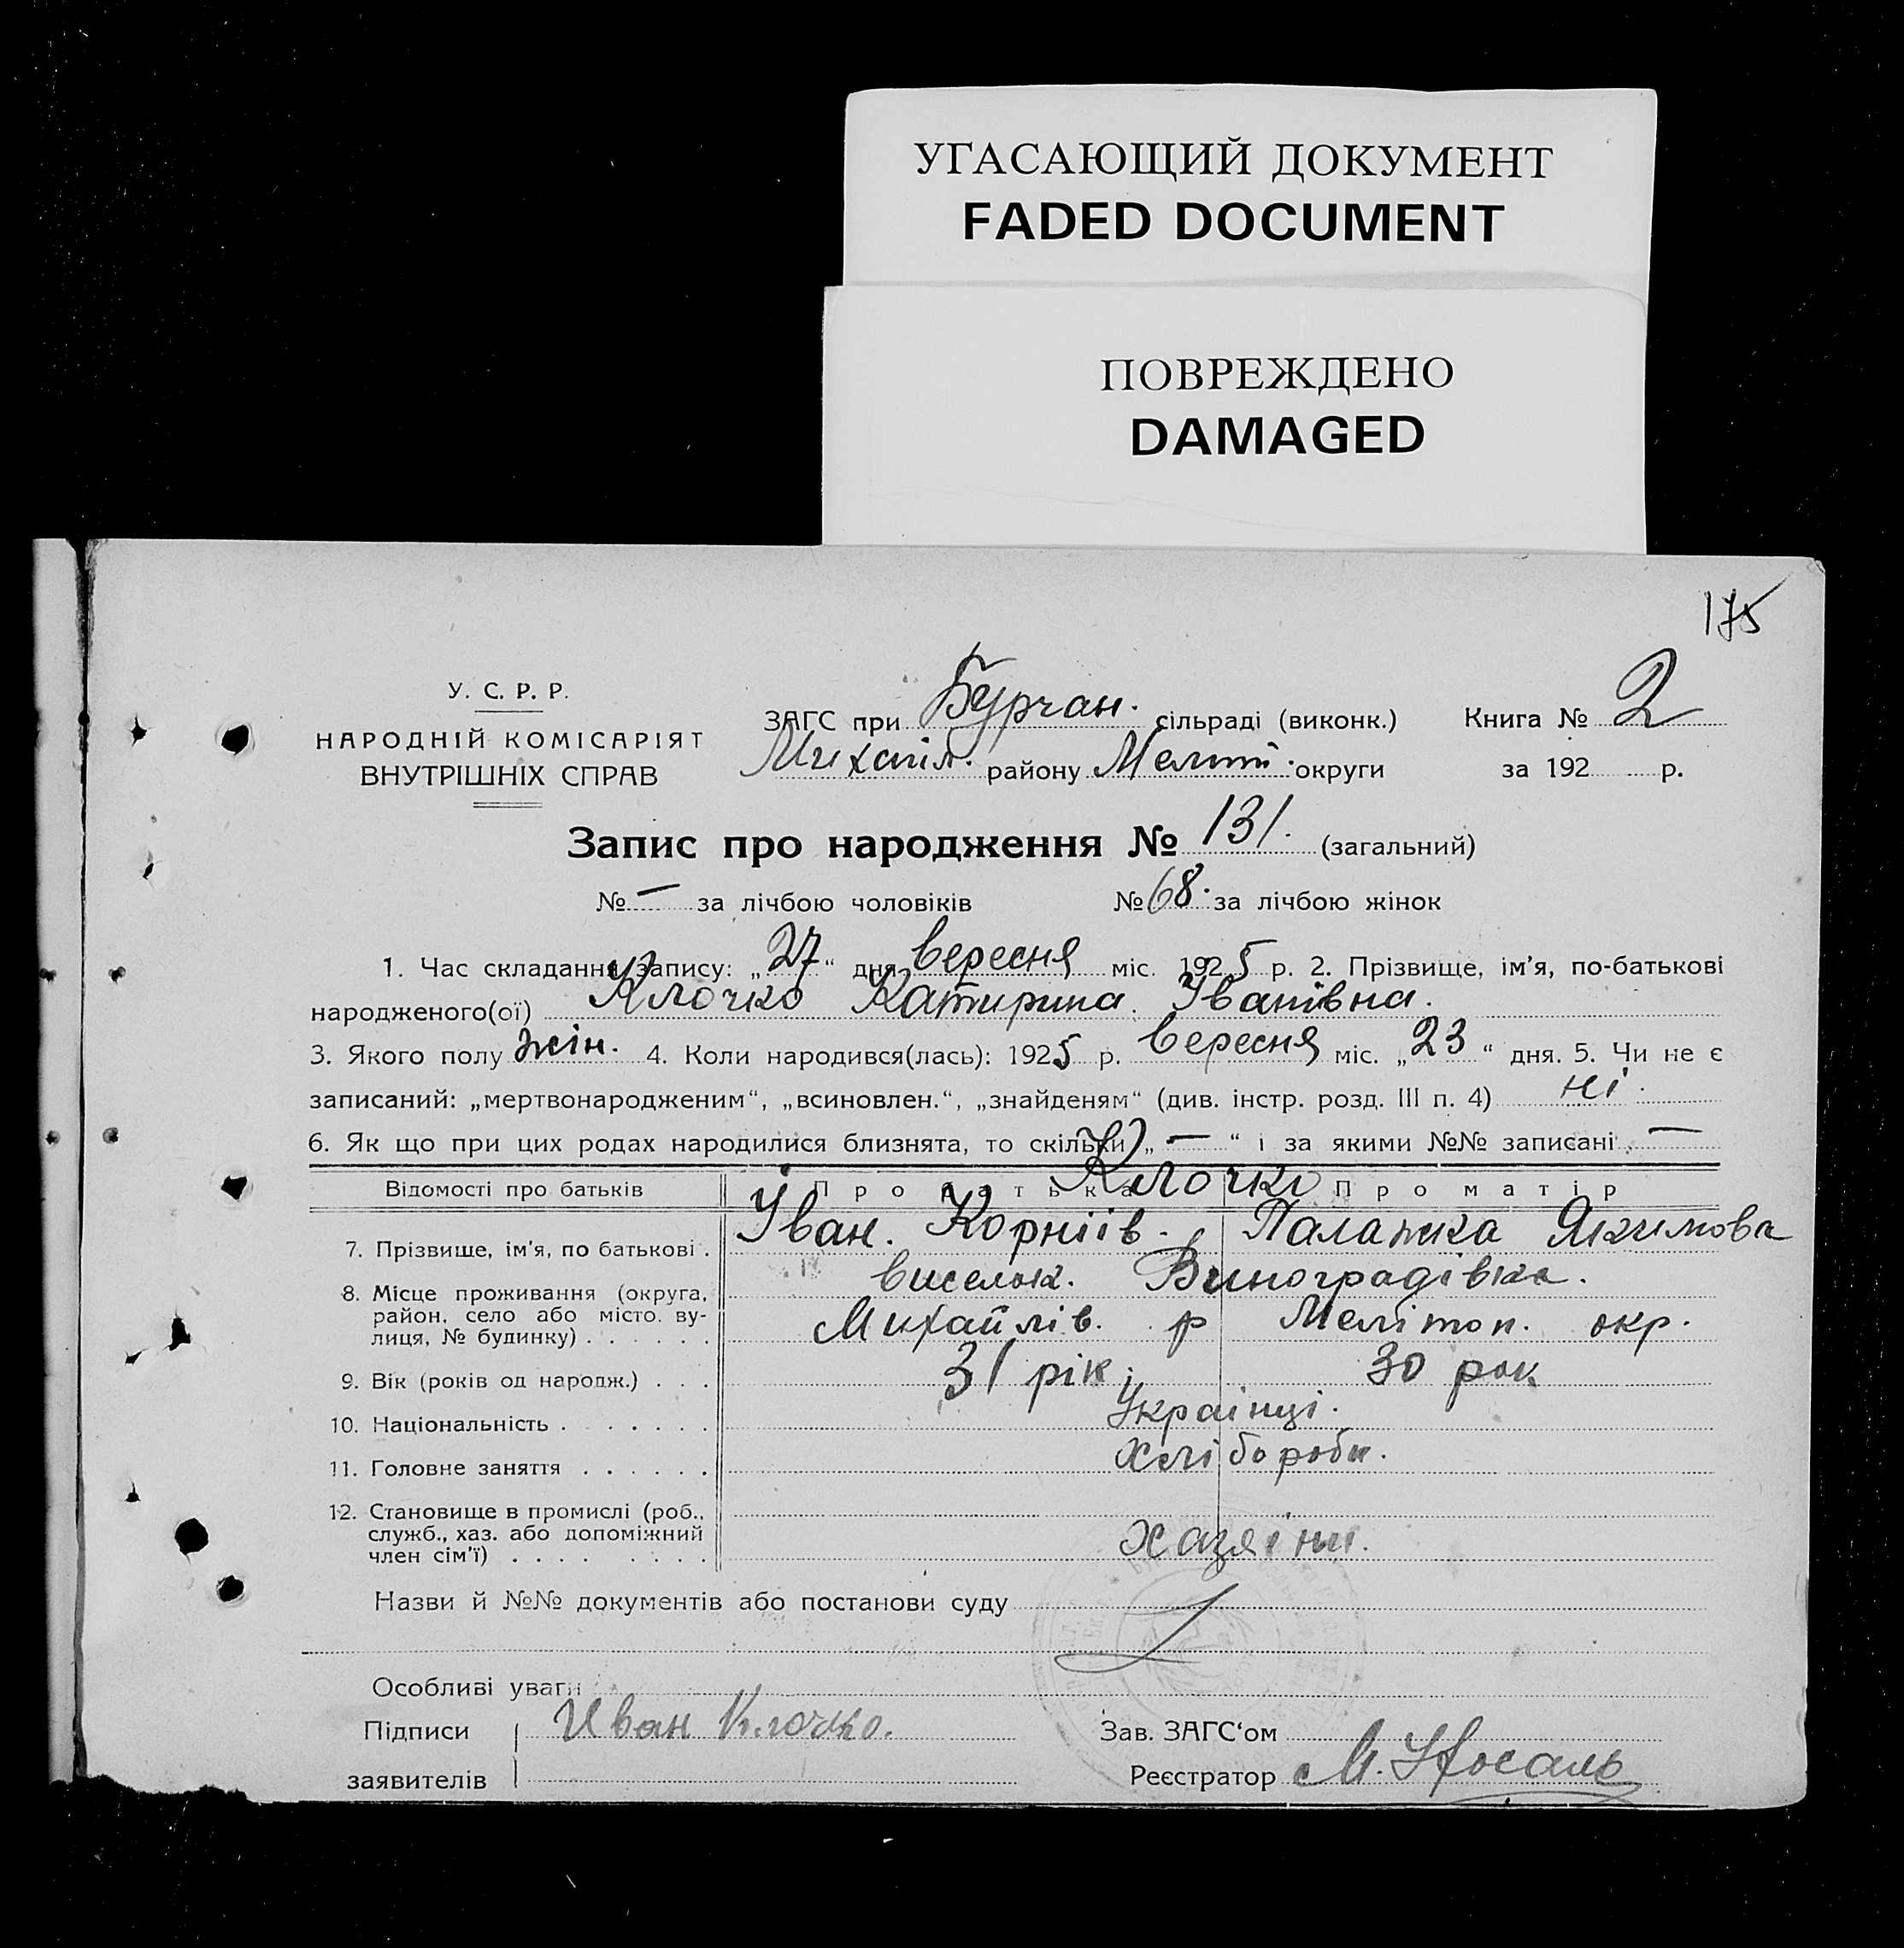 УГАСАЮЩИЙ ДОКУМЕНТ
FADED DOCUMENT
ПОВРЕЖДЕНО
DAMAGED
175
У. С. Р. Р.
НАРОДНІЙ КОМІСАРІЯТ
ВНУТРІШНІХ СПРАВ
ЗАГС при Бурчан. сільраді (виконк.) Книга № 2
Михайл. району Меліт. округи за 192 р.
Запис про народження № 131. (загальний)
№ — за лічбою чоловіків № 68. за лічбою жінок
1. Час складання запису: „27“ дня вересня міс. 1925 р. 2. Прізвище, ім'я, по-батькові
народженого(ої) Клочко Катирина Іванівна.
3. Якого полу жін. 4. Коли народився(лась): 1925 р. вересня міс. „23“ дня. 5. Чи не є
записаний: „мертвонародженим“, „всиновлен.“, „знайденям“ (див. інстр. розд. III п. 4) ні.
6. Як що при цих родах народилися близнята, то скільки „—“ і за якими №№ записані —
Відомості про батьків Про батька Про матір
Клочко
7. Прізвище, ім'я, по батькові . Іван. Корніїв. Палажка Якимова
8. Місце проживання (округа, виселок. Виноградівка.
район, село або місто, ву-
лиця, № будинку) . . . . . . Михайлів. р Мелітоп. окр.
9. Вік (років од народж.) . . 31 рік; 30 рок
10. Національність . . . . . . . Українці.
11. Головне заняття . . . . . . Хлібороби.
12. Становище в промислі (роб.,
служб., хаз. або допоміжний
член сім'ї) . . . . . . . . . Хазяіни.
Назви й №№ документів або постанови суду
Особливі уваги
Підписи Иван Клочко. Зав. ЗАГС'ом
заявителів Реєстратор М. Носаль